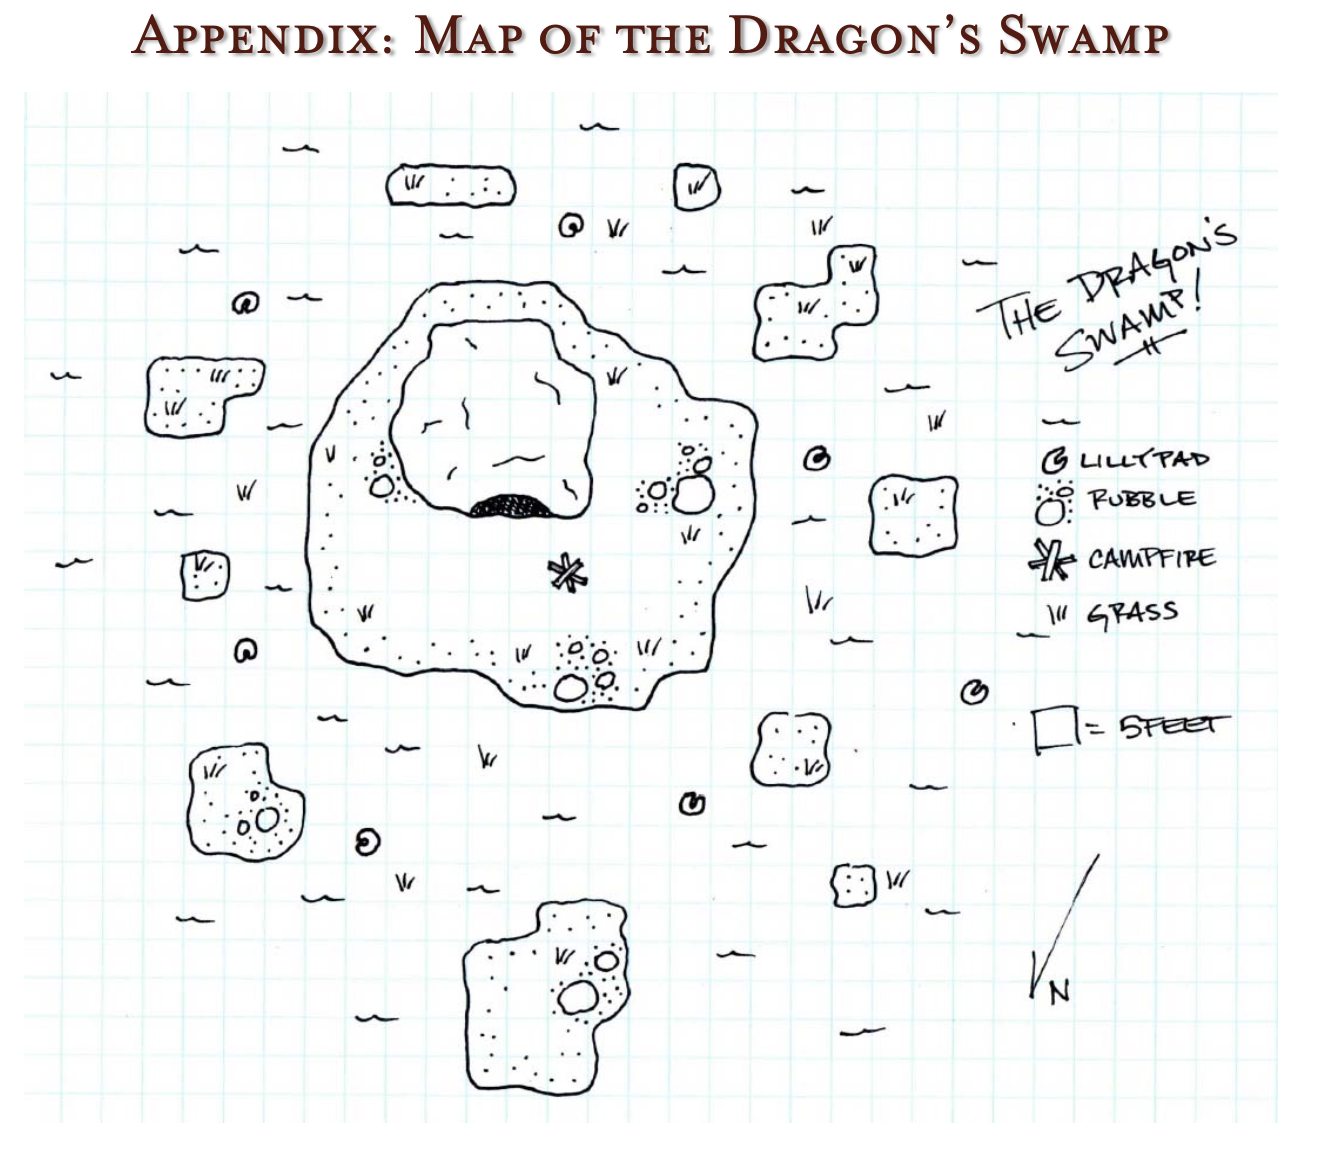 APPENDIX: MAP OF THE DRAGON'S SWAMP
THE DRAGON'S
SWAMP!
LILLYPAD
RUBBLE
CAMPFIRE
GRASS
= 5 FEET
N